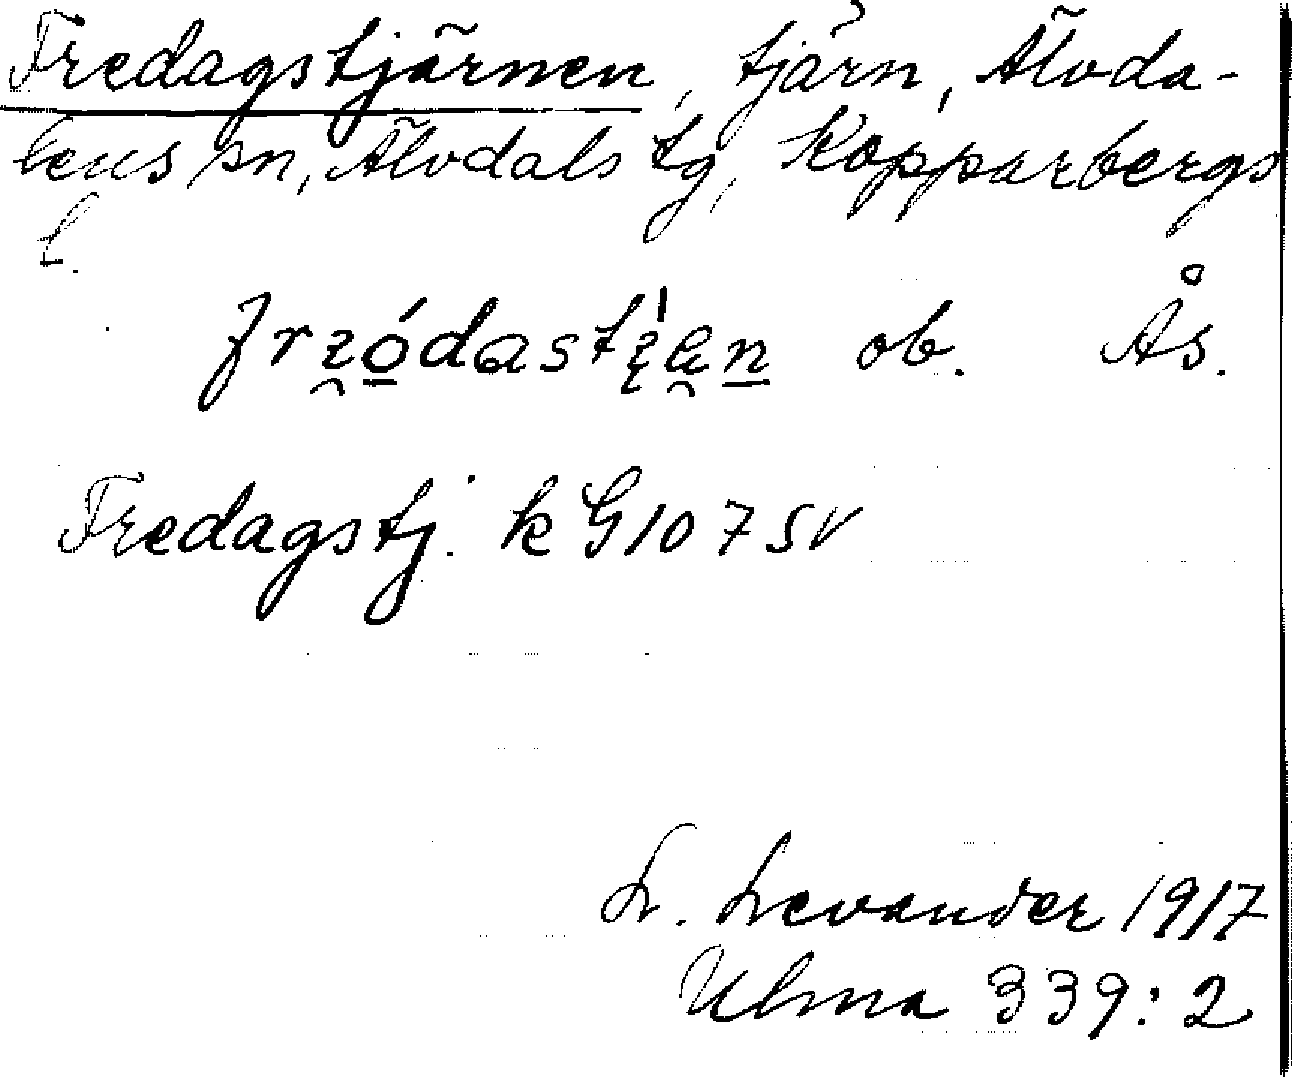 Fredagstjärnen, tjärn, Älvda-
lens sn, Älvdals tg, Kopparbergs
l.
ob. Ås.
Fredagstj. k G 107 SV
L. Levander 1917
Ulma 339:2